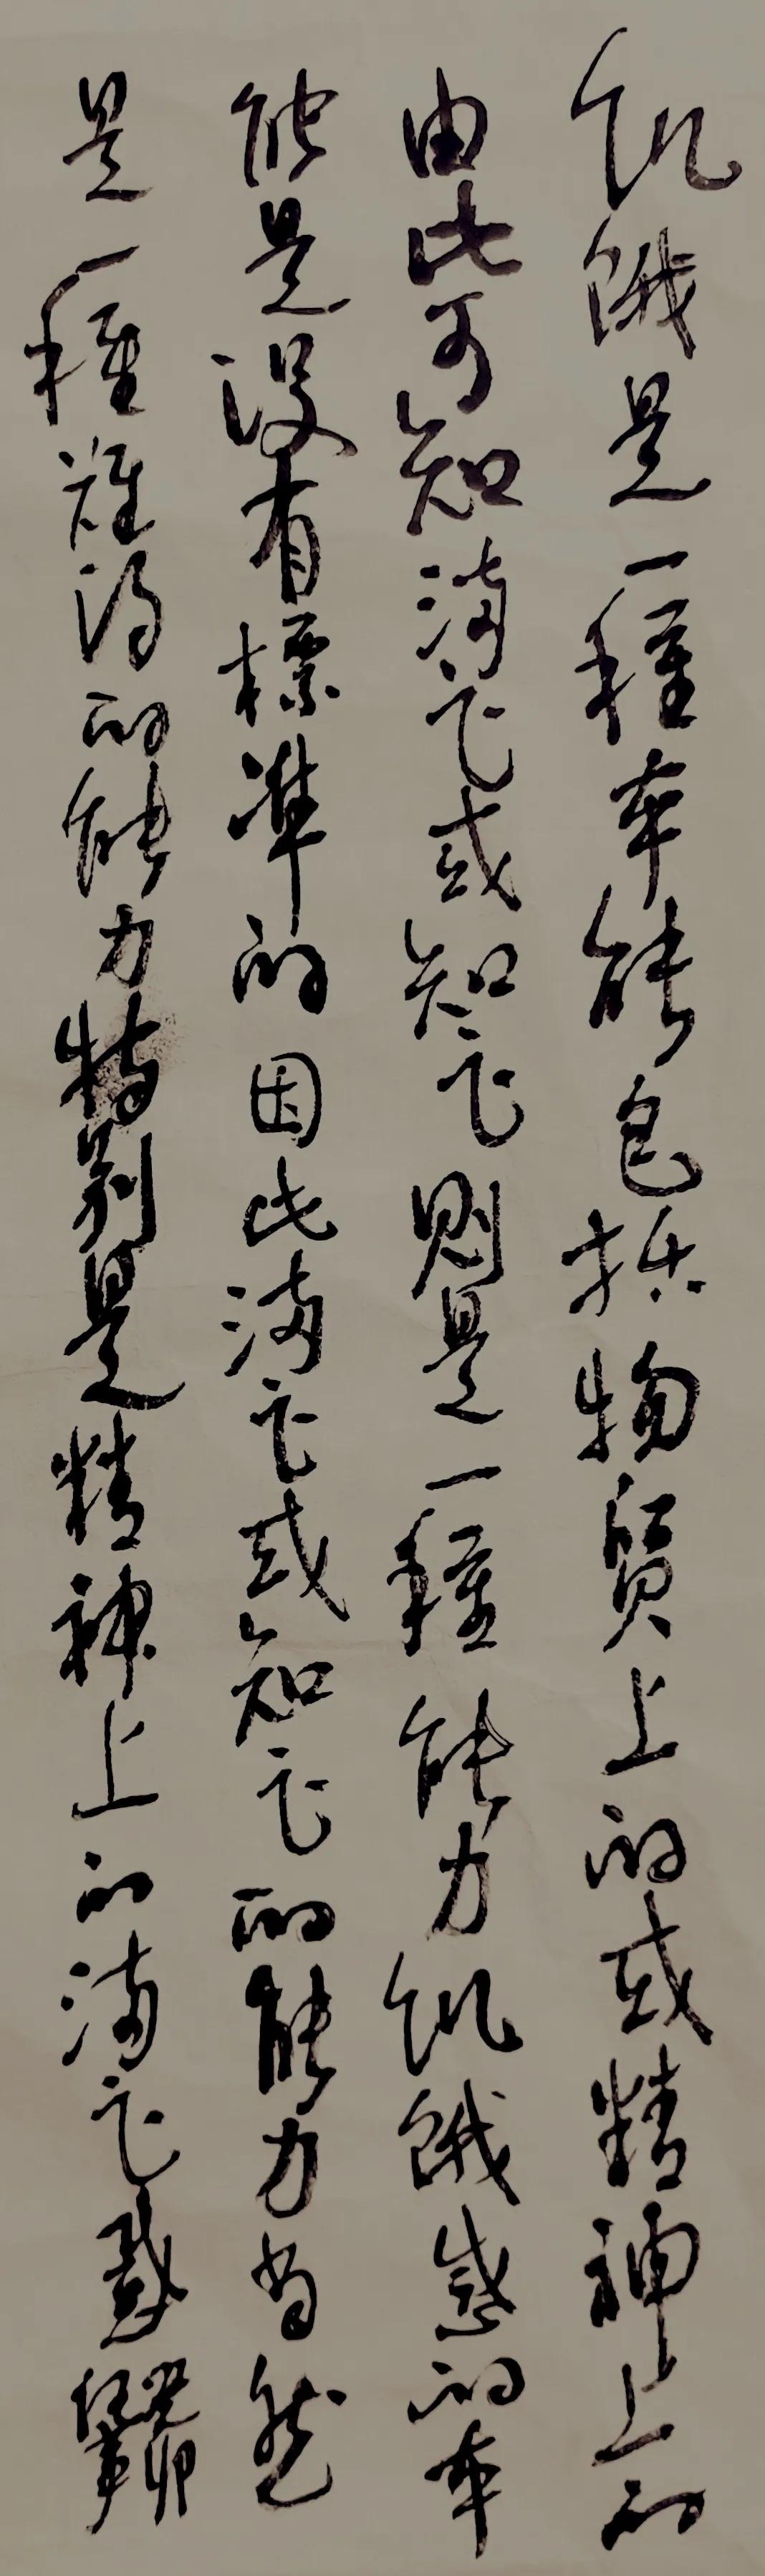 飢餓是一種本能包括物質上的或精神上的
由此可知滿足或知足則是一種能力飢餓感的本
能是沒有標準的因此滿足或知足的能力當然
是一種難得的能力特別是精神上的滿足感